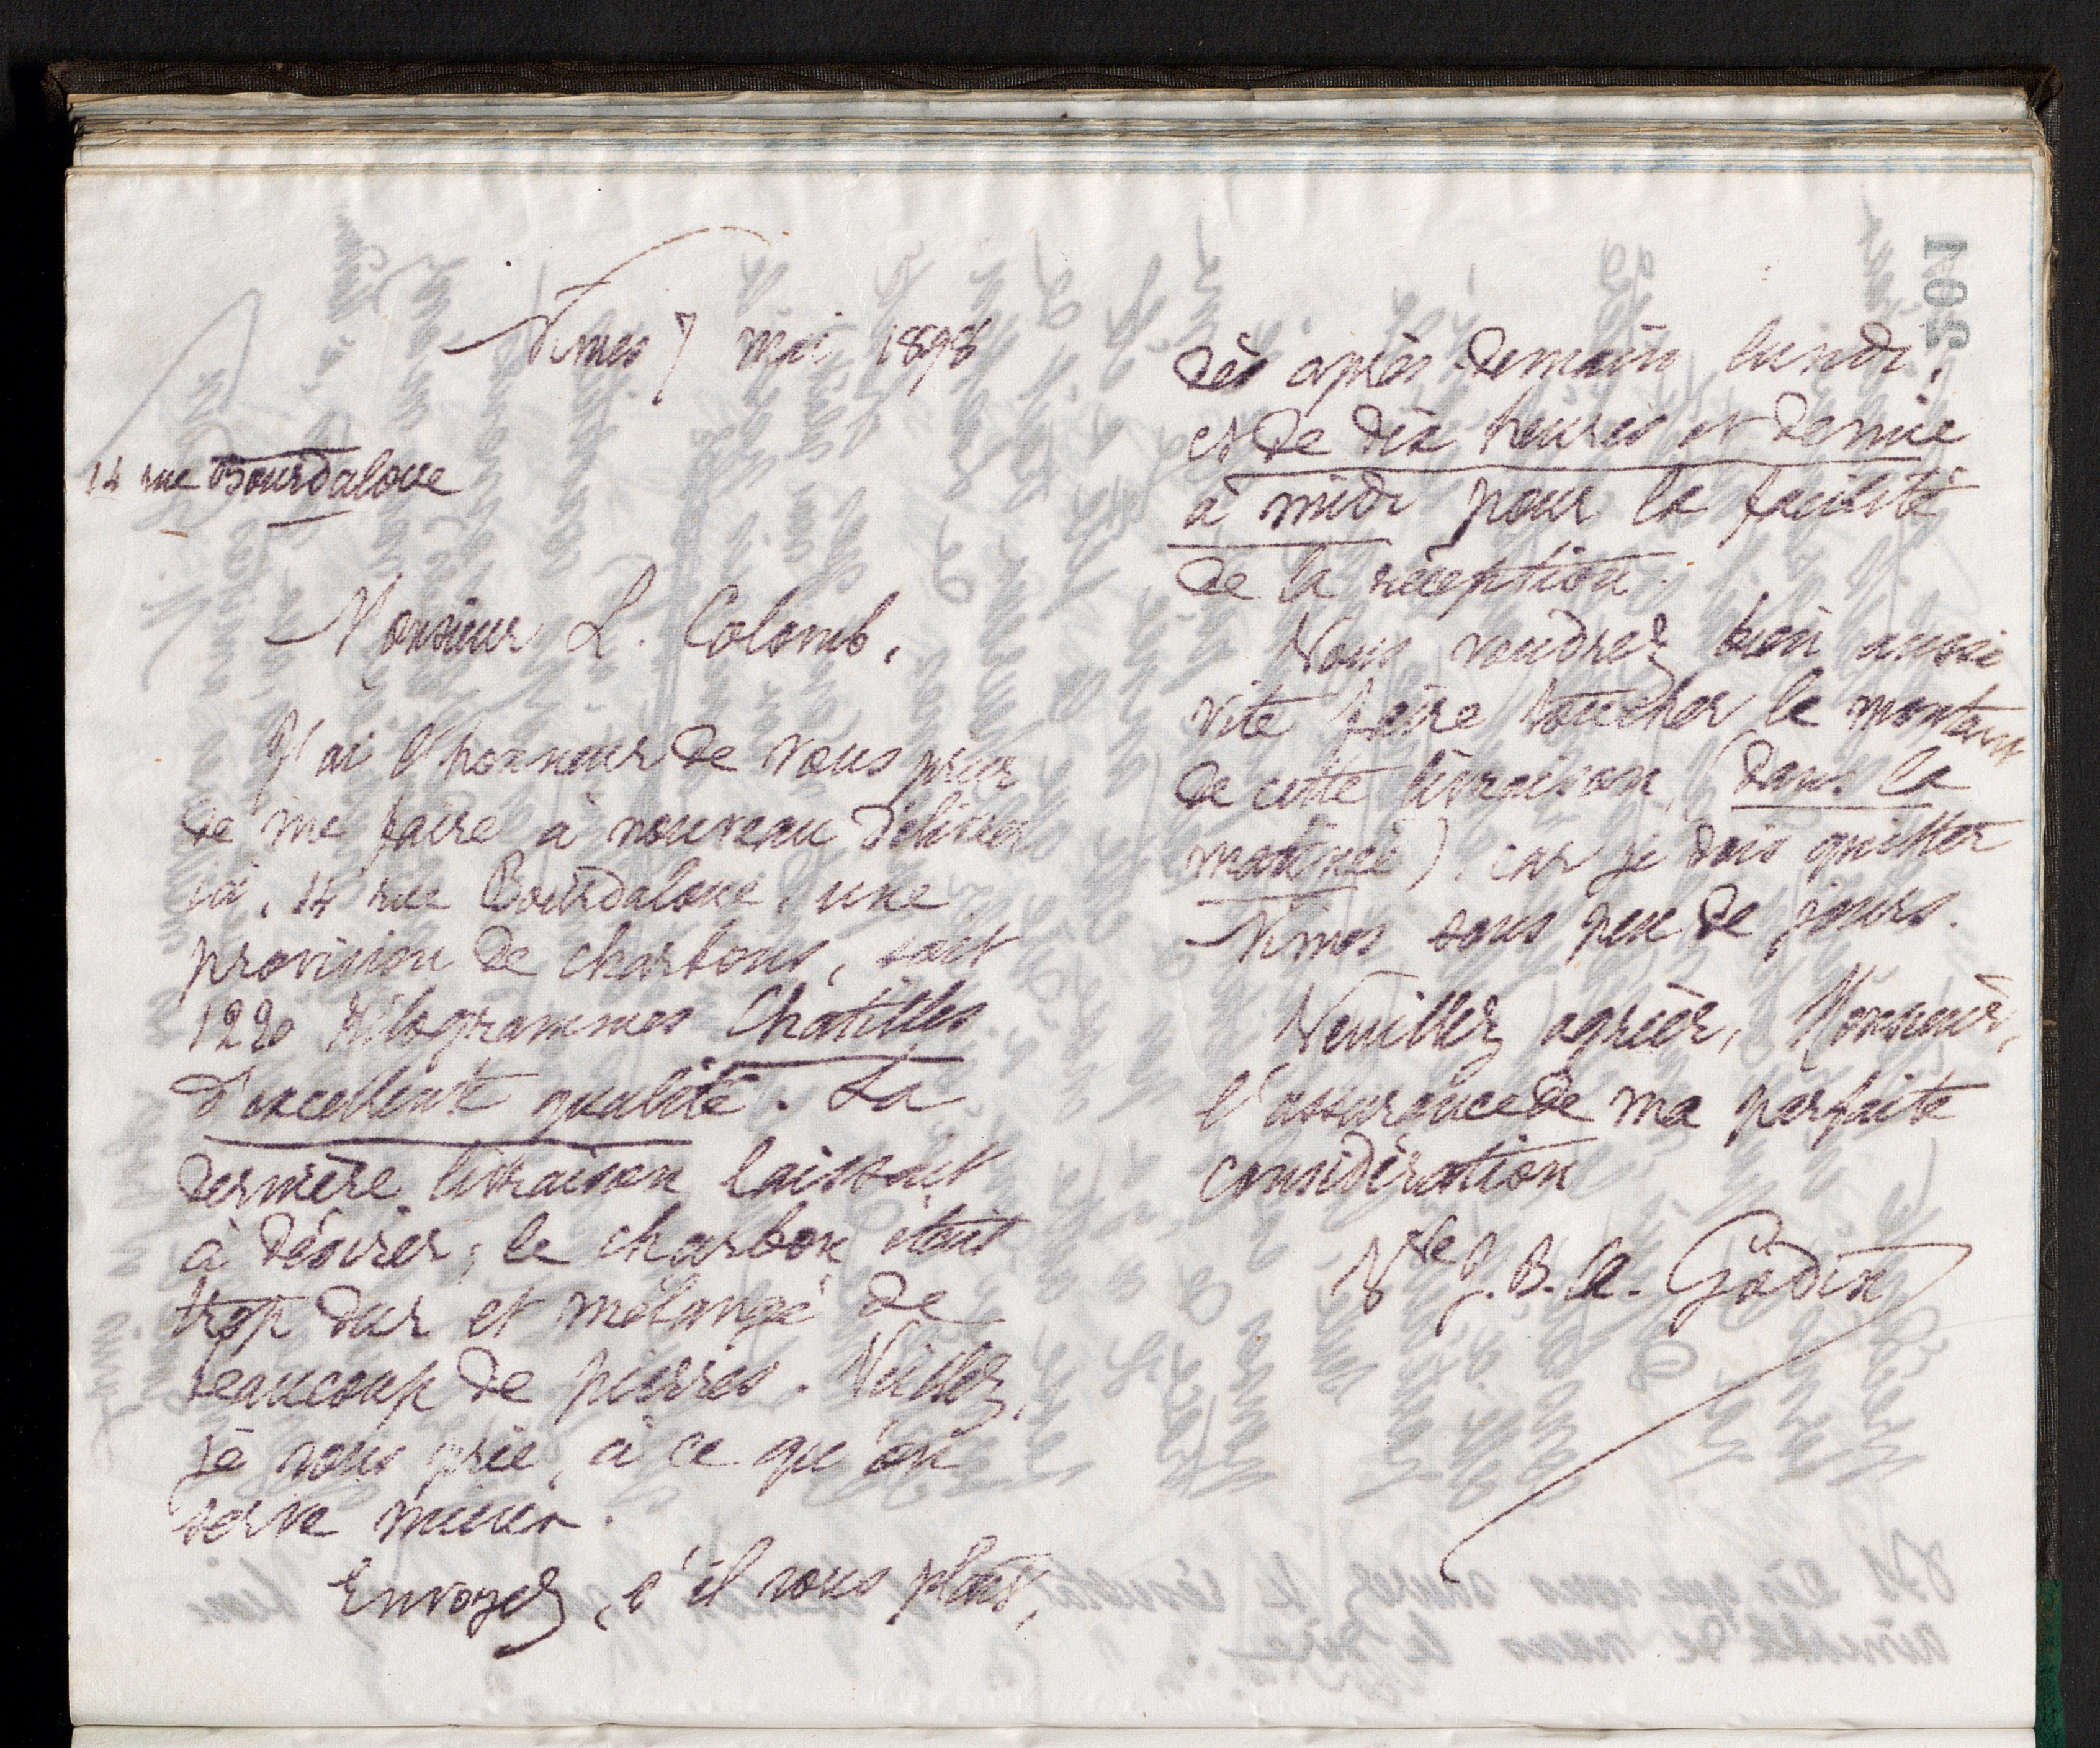 501
Nimes 7 mai 1898
14 rue Bourdaloue
Monsieur L. Colomb,
J'ai l'honneur de vous prier
de me faire à nouveau délivrer
ici, 14 rue Bourdaloue, une
provision de charbons, soit
1220 kilogrammes Chatilles
d'excellente qualité. La
dernière livraison laissait
à désirer, le charbon était
trop dur et mélangé de
beaucoup de pierres. Veillez,
je vous prie, à ce qu'on
serve mieux.
Envoyez, s'il vous plait,
dès après-demain lundi,
et de dix heures et demie
à midi pour la facilité
de la réception.
Vous voudrez bien aussi
vite faire toucher le montant
de cette livraison, (dans la
matinée), car je dois quitter
Nimes sous peu de jours.
Veuillez agréer, Monsieur,
l'assurance de ma parfaite
considération
Vve J. B. A. Godin